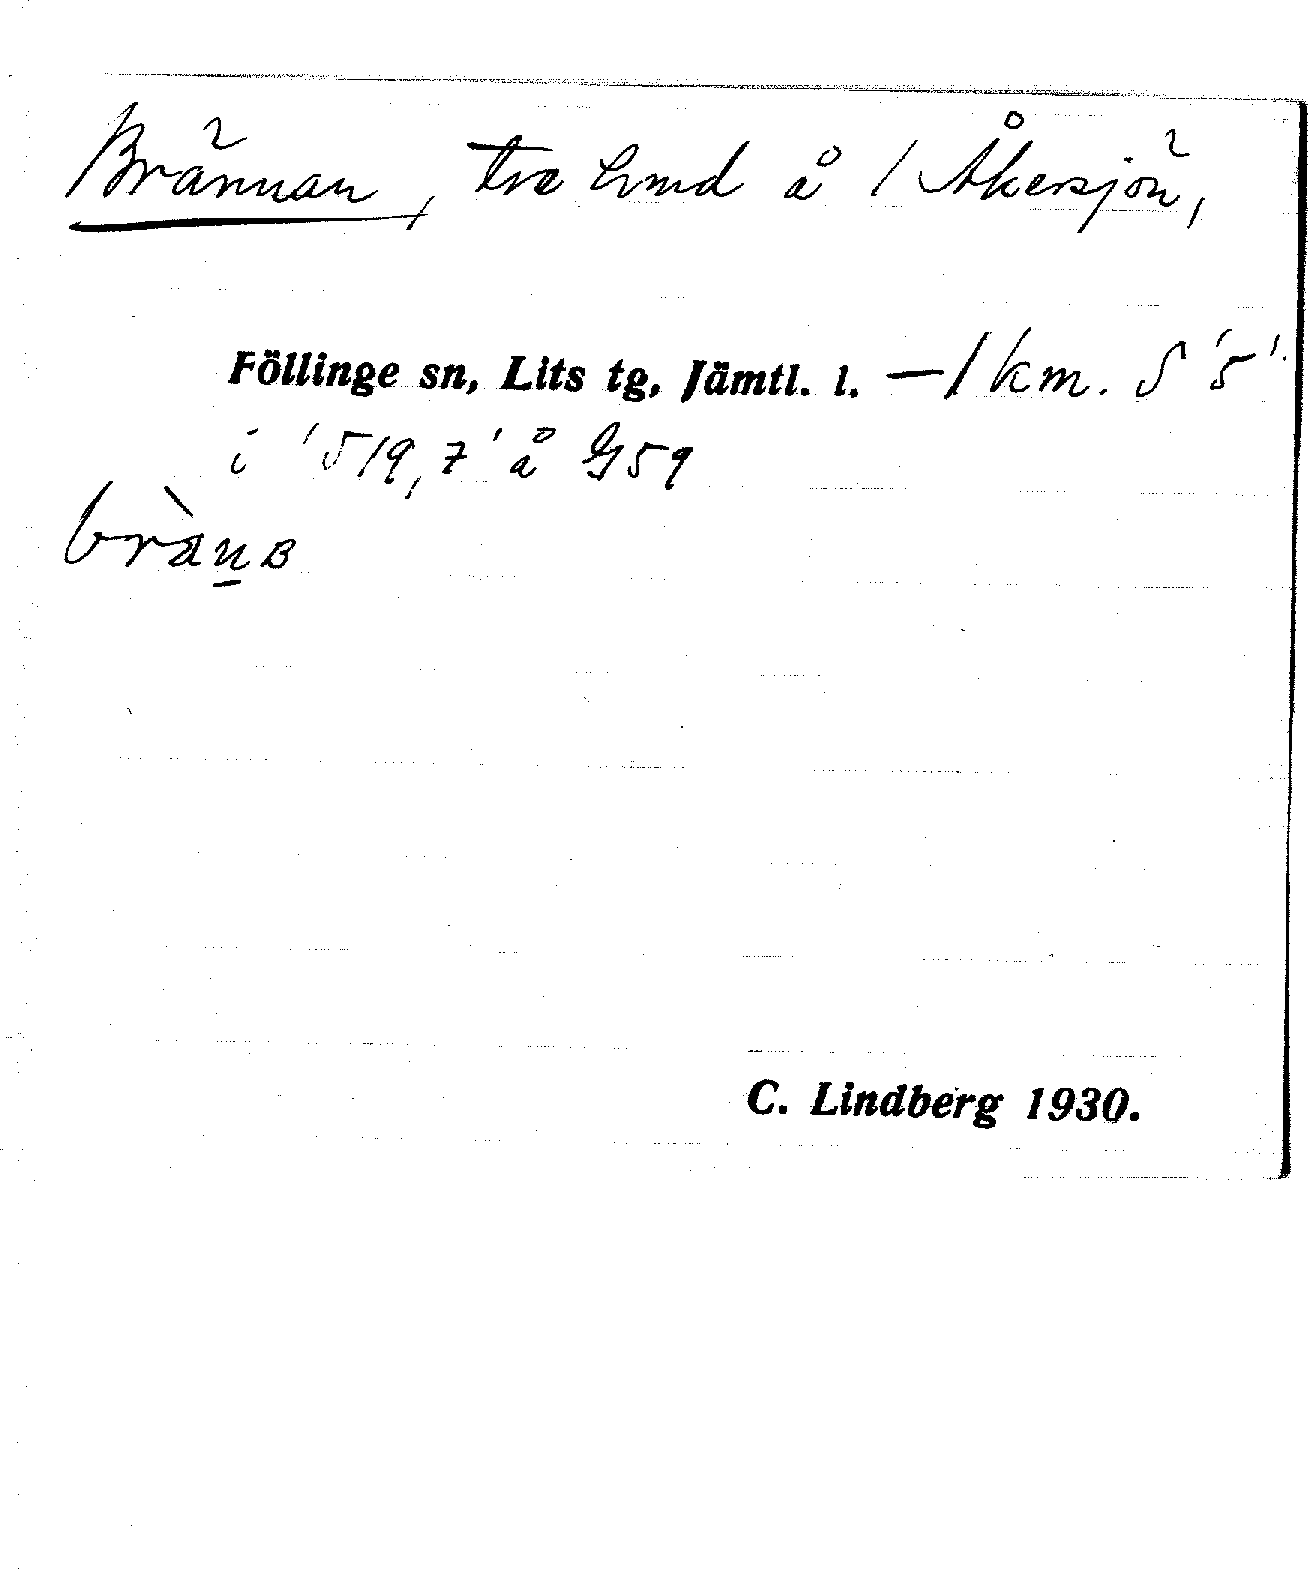 Brännan, tre hmd å 1 Åkersjön,
Föllinge sn, Lits tg, Jämtl. l. — 1 km. S '5'
i '519,7' å G59
bràn̲ʙ
C. Lindberg 1930.